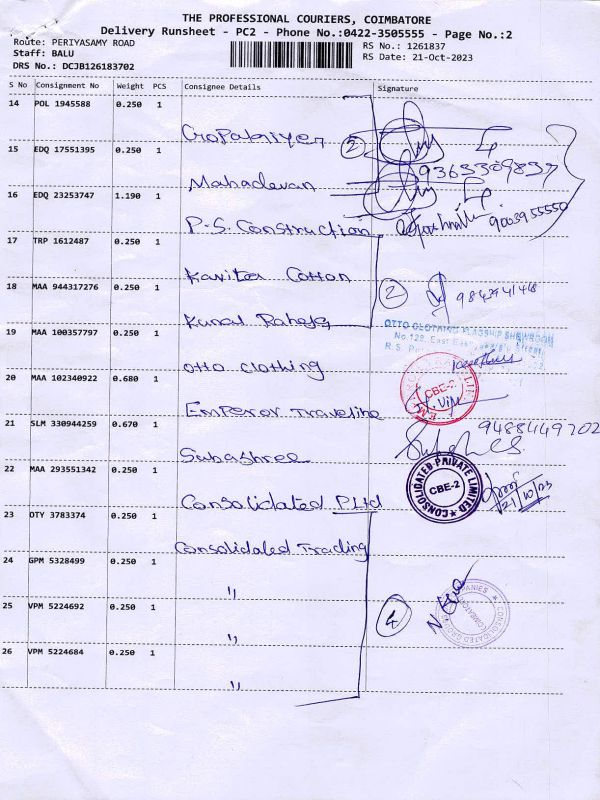 THE PROFESSIONAL COURIERS, COIMBATORE
Delivery Runsheet - PC2 - Phone No.:0422-3505555 - Page No.:2
Route: PERIYASAMY ROAD
RS No.: 1261837
Staff: BALU
RS Date: 21-Oct-2023
DRS No.: DCJB126183702
S No Consignment No Weight PCS Consignee Details Signature
14 POL 1945588 0.250 1
Gopalniyer 2
15 EDQ 17551395 0.250 1
9363309837
Mahadevan
16 EDQ 23253747 1.190 1
P.S. Construction 9003955550
17 TRP 1612487 0.250 1
Kavita Cotton
18 MAA 944317276 0.250 1
2
Kunal Raheja
19 MAA 100357797 0.250 1
OTTO CLOTHING FLAGSHIP SHOWROOM
No.128, East
R.S.
otto clothing
20 MAA 102340922 0.680 1
CBE-2
Emperor Traveline
21 SLM 330944259 0.670 1
9488449702
Subashree
22 MAA 293551342 0.250 1
CONSOLIDATED PRIVATE LIMITED
CBE-2
21/10/23
Consolidated P Ltd
23 OTY 3783374 0.250 1
Consolidated Trading
24 GPM 5328499 0.250 1
,,
25 VPM 5224692 0.250 1
4
,,
26 VPM 5224684 0.250 1
,,